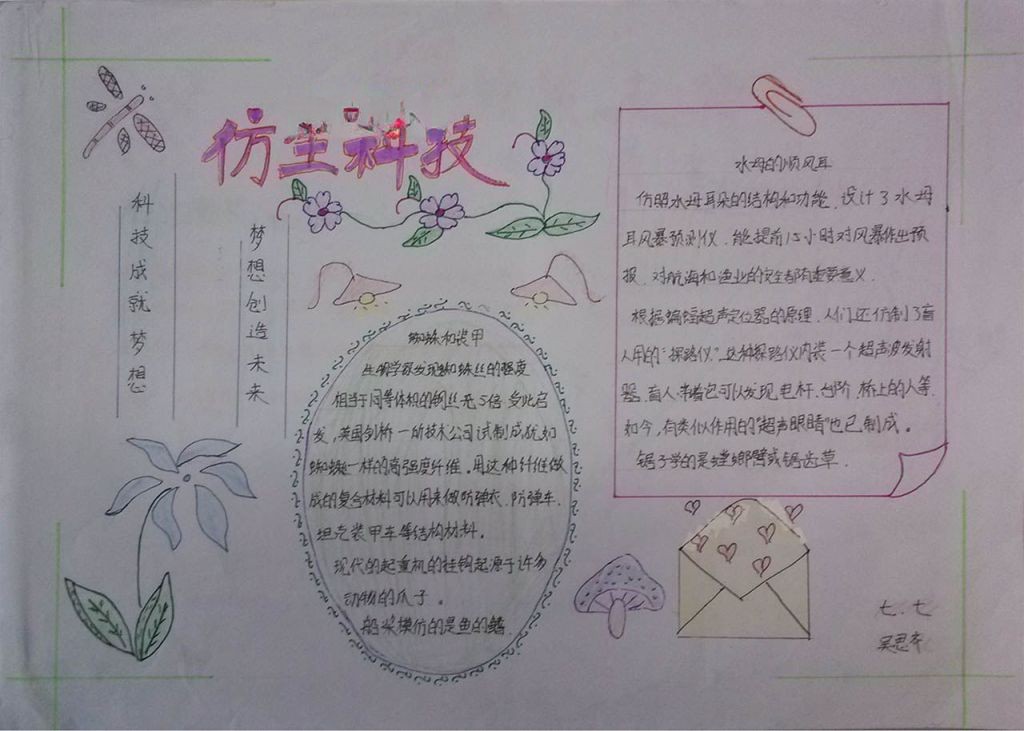 仿生科技
科技成就梦想
梦想创造未来
蜘蛛和装甲
生物学家发现蜘蛛丝的强度
相当于同等体积的钢丝无5倍.受此启
发,英国剑桥一所技术公司试制成犹如
蜘蛛丝一样的高强度纤维.用这种纤维做
成的复合材料可以用来做防弹衣.防弹车.
坦克装甲车等结构材料。
现代的起重机的挂钩起源于许多
动物的爪子。
船桨模仿的是鱼的鳍.
水母的顺风耳
仿照水母耳朵的结构和功能,设计了水母
耳风暴预测仪,能提前15小时对风暴作出预
报,对航海和渔业的安全都有重要意义.
根据蝙蝠超声定位器的原理,人们还仿制了盲
人用的“探路仪”.这种探路仪内装一个超声波发射
器,盲人带着它可以发现电杆.台阶.桥上的人等.
如今,有类似作用的“超声眼睛”也已制成。
锯子学的是螳螂臂或锯齿草.
七.七